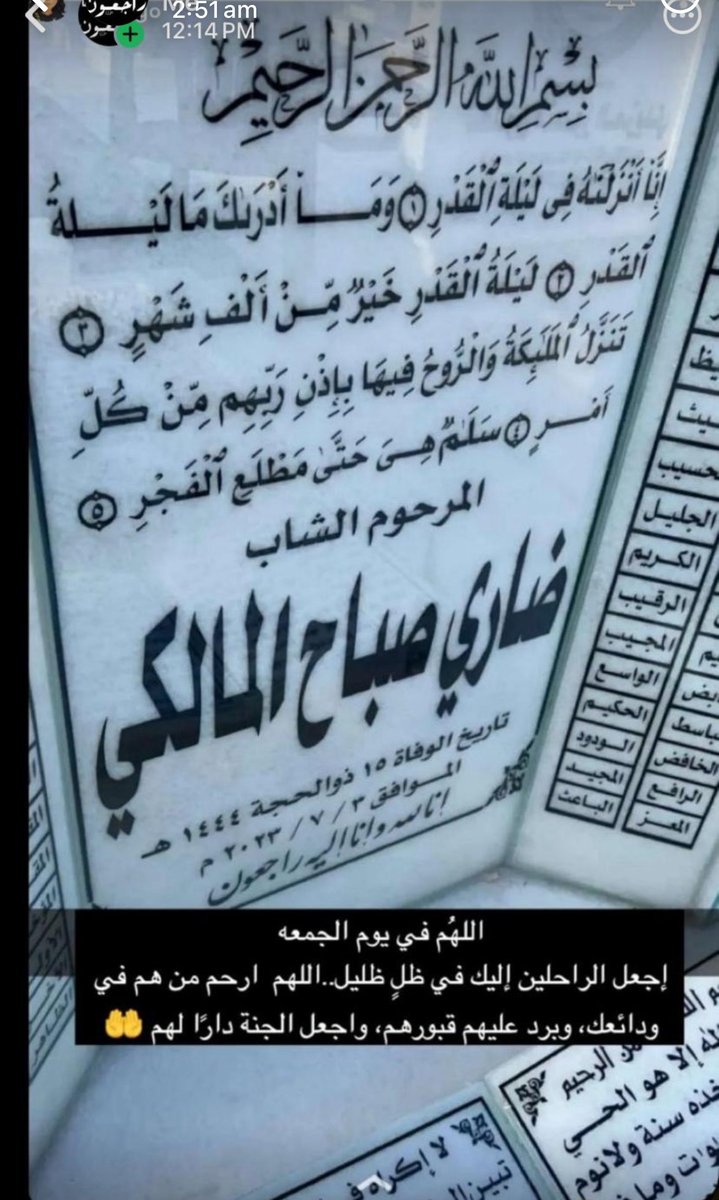 راجعون
2:51am
12:14 PM
بِسْمِ اللَّهِ الرَّحْمَنِ الرَّحِيمِ
إِنَّا أَنْزَلْنَاهُ فِى لَيْلَةِ ٱلْقَدْرِ ١ وَمَا أَدْرَىٰكَ مَا لَيْلَةُ
ٱلْقَدْرِ ٢ لَيْلَةُ ٱلْقَدْرِ خَيْرٌ مِّنْ أَلْفِ شَهْرٍ ٣
تَنَزَّلُ ٱلْمَلَٰٓئِكَةُ وَالرُّوحُ فِيهَا بِإِذْنِ رَبِّهِم مِّنْ كُلِّ
أَمْرٍ ٤ سَلَٰمٌ هِىَ حَتَّىٰ مَطْلَعِ ٱلْفَجْرِ ٥
المرحوم الشاب
ضاري صباح المالكي
تاريخ الوفاة ١٥ ذو الحجة ١٤٤٤ هـ
الموافق ٣ / ٧ / ٢٠٢٣ م
إنا لله وإنا إليه راجعون
الجليل
الكريم
الرقيب
المجيب
الواسع
الحكيم
الودود
المجيد
الباعث
الخافض
الرافع
المعز
اللهُم في يوم الجمعه
إجعل الراحلين إليك في ظلٍ ظليل..اللهم ارحم من هم في
ودائعك، وبرد عليهم قبورهم، واجعل الجنة دارًا لهم 🤲
الرحيم
إلا هو الحي
سنة ولا نوم
وما
لا إكراه
تبين